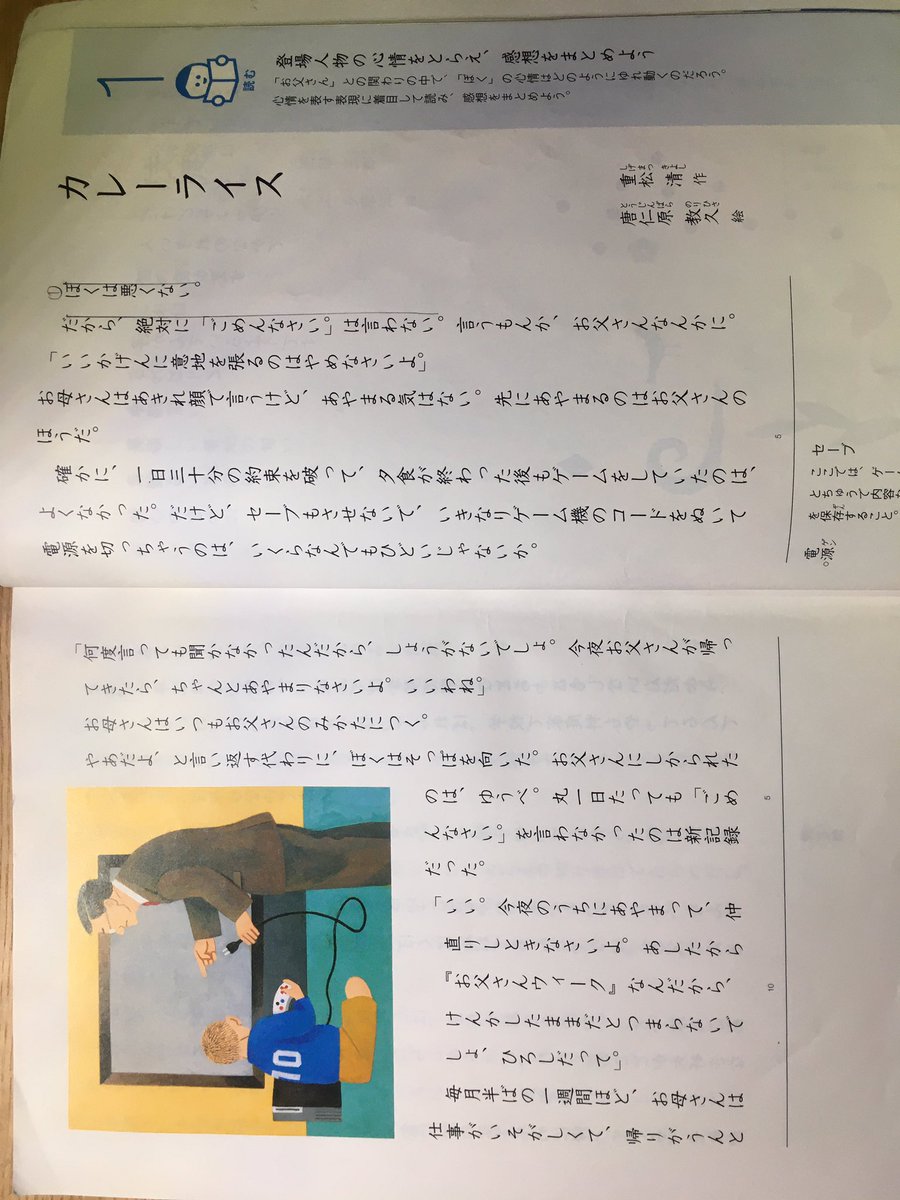 1
読む
登場人物の心情をとらえ、感想をまとめよう
「お父さん」との関わりの中で、「ぼく」の心情はどのようにゆれ動くのだろう。
心情を表す表現に着目して読み、感想をまとめよう。
カレーライス
重松 清 作
しげまつ きよし
唐仁原 教久 絵
とうじんばら のりひさ
①ぼくは悪くない。
だから、絶対に「ごめんなさい。」は言わない。言うもんか、お父さんなんかに。
「いいかげんに意地を張るのはやめなさいよ。」
お母さんはあきれ顔で言うけど、あやまる気はない。先にあやまるのはお父さんの
ほうだ。
5
確かに、一日三十分の約束を破って、夕食が終わった後もゲームをしていたのは、
よくなかった。だけど、セーブもさせないで、いきなりゲーム機のコードをぬいて
電源を切っちゃうのは、いくらなんでもひどいじゃないか。
セーブ
ここでは、ゲー
とちゅうで内容
を保存すること。
電源
ゲン
「何度言っても聞かなかったんだから、しょうがないでしょ。今夜お父さんが帰っ
てきたら、ちゃんとあやまりなさいよ。いいわね。」
お母さんはいつもお父さんのみかたにつく。
やあだよ、と言い返す代わりに、ぼくはそっぽを向いた。お父さんにしかられた
のは、ゆうべ。丸一日たっても「ごめ
5
んなさい。」を言わなかったのは新記録
だった。
「いい。今夜のうちにあやまって、仲
直りしときなさいよ。あしたから
『お父さんウイーク』なんだから、
10
けんかしたままだとつまらないで
しょ、ひろしだって。」
毎月半ばの一週間ほど、お母さんは
仕事がいそがしくて、帰りがうんと
10